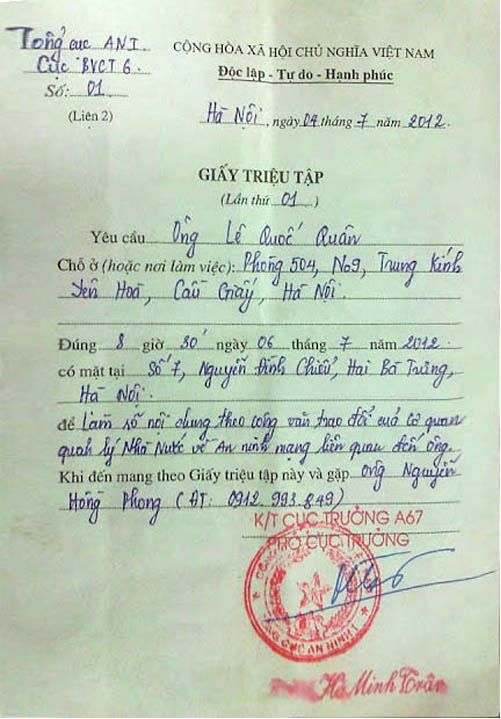 Tổng cục ANI
Cục BVCT 6
Số: 01
(Liên 2)
CỘNG HÒA XÃ HỘI CHỦ NGHĨA VIỆT NAM
Độc lập - Tự do - Hạnh phúc
Hà Nội, ngày 04 tháng 7 năm 2012.
GIẤY TRIỆU TẬP
(Lần thứ 01)
Yêu cầu Ông Lê Quốc Quân
Chỗ ở (hoặc nơi làm việc): Phòng 504, No9, Trung Kính
Yên Hoà, Cầu Giấy, Hà Nội.
Đúng 8 giờ 30' ngày 06 tháng 7 năm 2012
có mặt tại Số 7, Nguyễn Đình Chiểu, Hai Bà Trưng,
Hà Nội.
để Làm số nội dung theo công văn trao đổi của cơ quan
quản lý Nhà Nước về An ninh mạng liên quan đến ông.
Khi đến mang theo Giấy triệu tập này và gặp ông Nguyễn
Hồng Phong (ĐT: 0912.993.849)
K/T CỤC TRƯỞNG A67
PHÓ CỤC TRƯỞNG
TỔNG CỤC AN NINH I
Hà Minh Trân